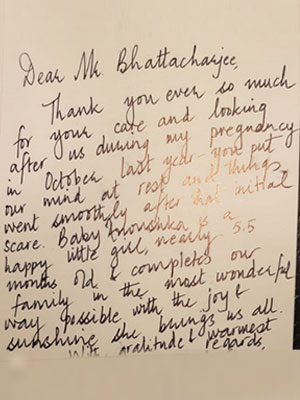 Dear Mr. Bhattacharjee,
Thank you ever so much
for your care and looking
after us during my pregnancy
in October last year - you put
our mind at rest and things
went smoothly after that initial
scare. Baby is a
happy little girl, nearly 5.5
months old & completes our
family in the most wonderful
way possible with the joy &
sunshine she brings us all.
With gratitude & warmest
regards,